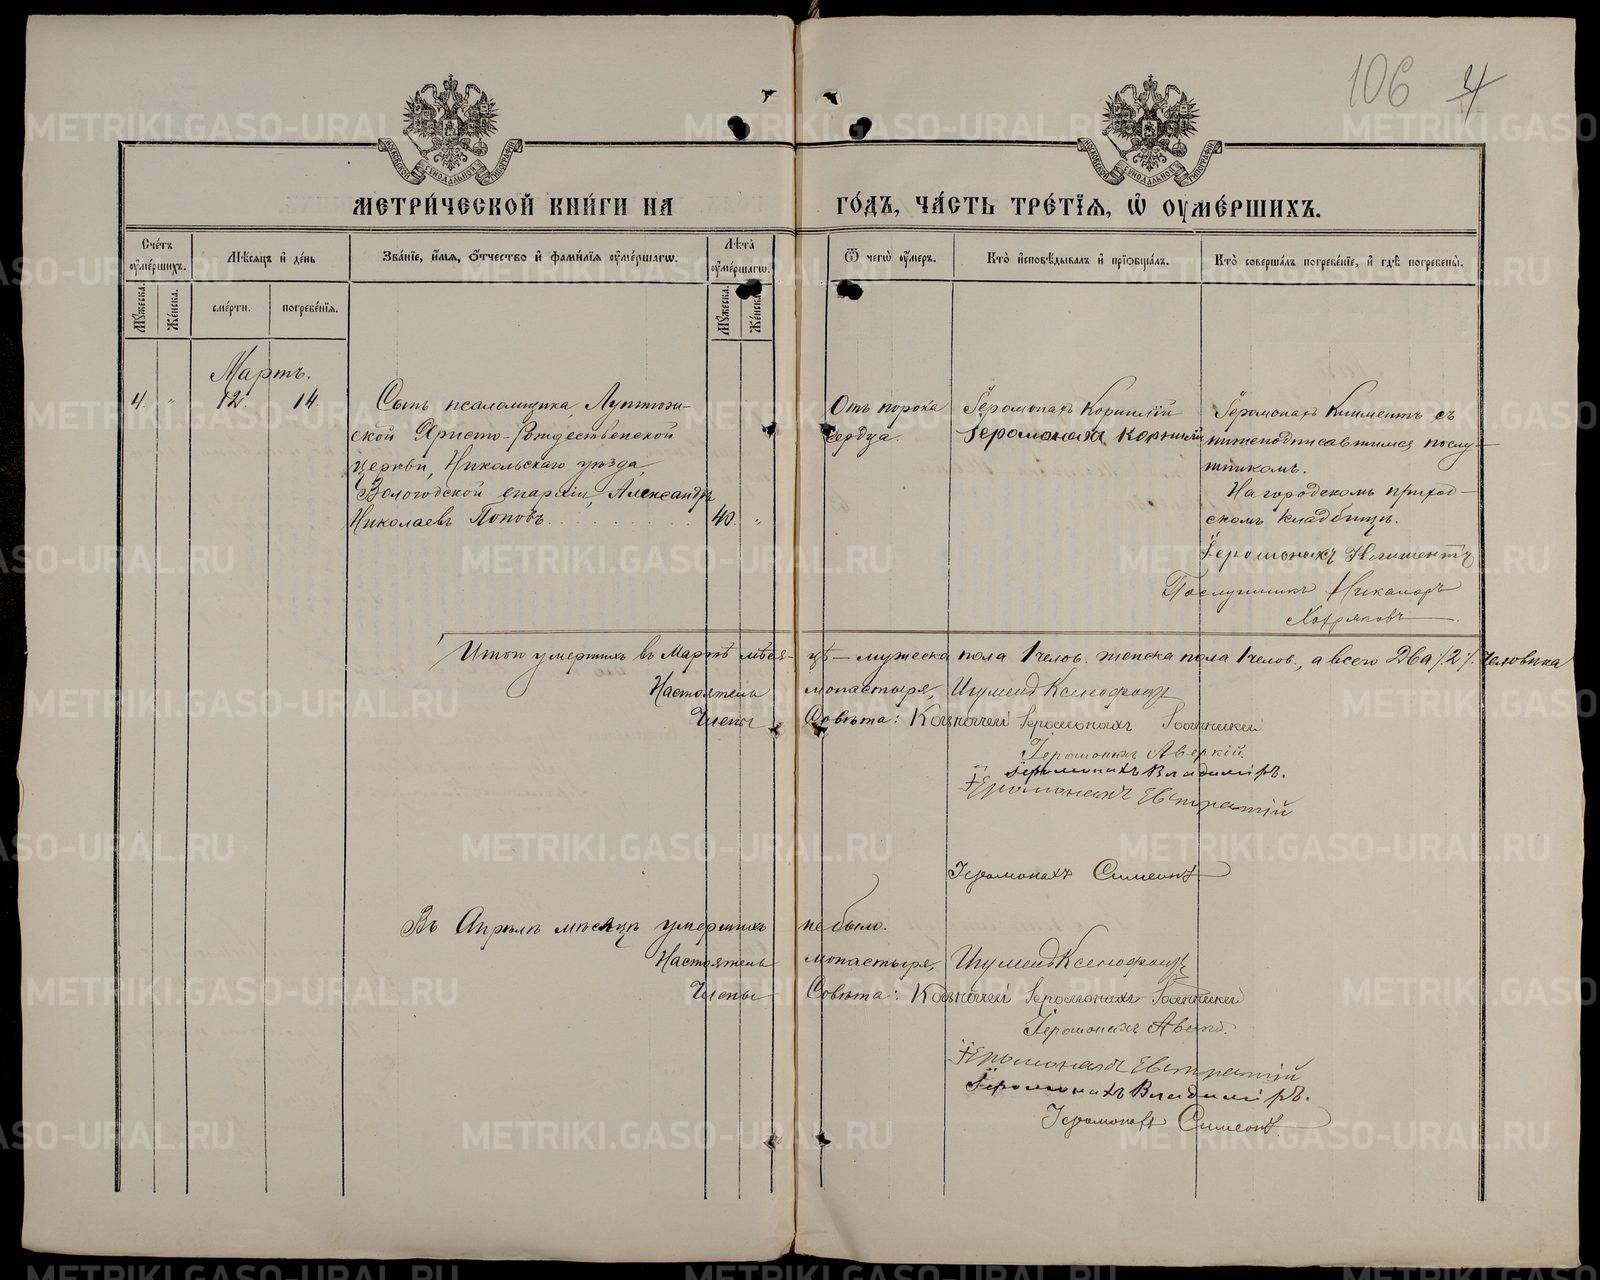 106 4
МОСКОВСКОЙ СѴНОДАЛЬНОЙ ТИПОГРАФІИ
МОСКОВСКОЙ СѴНОДАЛЬНОЙ ТИПОГРАФІИ
МЕТРИ́ЧЕСКОЙ КНИ́ГИ НА ГО́ДЪ, ЧА́СТЬ ТРЕ́ТЇѦ, Ѡ҆ ОУ҆МЕ́РШИХЪ.
Сче́тъ оу҆ме́ршихъ.
Мꙋ́жеска.
Же́нска.
Мѣ́сѧцъ и҆ де́нь
сме́рти.
погребе́нїѧ.
Зва́нїе, и҆́мѧ, ѻ҆́тчество и҆ фами́лїѧ оу҆ме́ршагѡ.
Лѣ́та оу҆ме́ршагѡ.
Мꙋ́жеска.
Же́нска.
Ѿ чегѡ̀ оу҆́меръ.
Кто̀ и҆сповѣ́дывалъ и҆ прїѡбща́лъ.
Кто̀ соверша́лъ погребе́нїе, и҆ гдѣ̀ погребены̀.
Мартъ.
4. " 12. 14.
Сынъ псаломщика,
ской Христо-Рождественской
церкви, Никольскаго уѣзда,
Вологодской епархіи, Александръ
Николаевъ Поповъ. 40. "
Отъ порока
сердца.
Іеромонахъ Корнилій
Іеромонахъ Корнилій
Іеромонахъ Климентъ съ
нижеподписавшимся послу-
шникомъ.
На городскомъ приход-
скомъ кладбищѣ.
Іеромонахъ Климентъ
Послушникъ Никаноръ
Итого умершихъ въ Мартѣ мѣся- цѣ — мужеска пола 1 челов. женска пола 1 челов., а всего Два /2/ человѣка
Настоятель монастыря, Игуменъ Ксенофонтъ
Члены Совѣта: Казначей Іеромонахъ Іоанникій
Іеромонахъ Аверкій.
Іеромонахъ Владиміръ.
Іеромонахъ Евстратій
Іеромонахъ Симеонъ
Въ Апрѣлѣ мѣсяцѣ умершихъ не было.
Настоятель монастыря, Игуменъ Ксенофонтъ
Члены Совѣта: Казначей Іеромонахъ Іоанникій
Іеромонахъ
Іеромонахъ Евстратій
Іеромонахъ Владиміръ.
Іеромонахъ Симеонъ
METRIKI.GASO-URAL.RU